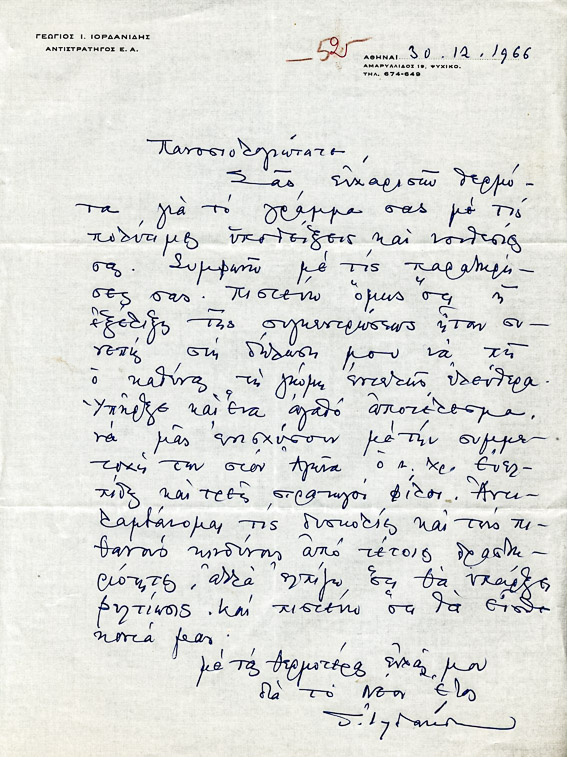 ΓΕΩΡΓΙΟΣ Ι. ΙΟΡΔΑΝΙΔΗΣ
ΑΝΤΙΣΤΡΑΤΗΓΟΣ Ε. Α.
525
ΑΘΗΝΑΙ 30.12.1966
ΑΜΑΡΥΛΛΙΔΟΣ 19, ΨΥΧΙΚΟ.
ΤΗΛ. 674-649
Πανοσιολογιώτατε,
Σᾶς εὐχαριστῶ θερμό-
τα γιὰ τὸ γράμμα σας μὲ τὶς
πολύτιμες ὑποδείξεις καὶ νουθεσίες
σας. Συμφωνῶ μὲ τὶς παρατηρή-
σεις σας. Πιστεύω ὅμως ὅτι ἡ
ἐξέλιξις τῆς συγκεντρώσεως ἦταν συ-
νεπὴς στὴ δήλωση μου νὰ πῆ
ὁ καθένας τὴ γνώμη ἐντελῶς ἐλεύθερα.
Ὑπῆρξε καὶ ἕνα ἀγαθὸ ἀποτέλεσμα,
νὰ μᾶς ἐνισχύσουν μὲ τὴν συμμε-
τοχὴ των στὸν Ἀγῶνα ὁ κ. Χρ. Εὐελ-
πίδης καὶ τρεῖς στρατηγοὶ φίλοι. Ἀντι-
λαμβάνομαι τὶς δυσκολίες καὶ τοὺς πι-
θανοὺς κινδύνους ἀπὸ τέτοιες δραστη-
ριότητες, ἀλλὰ ἐλπίζω ὅτι θὰ ὑπάρξει
βελτίωσις. Καὶ πιστεύω ὅτι θὰ εἶσθε
κοντά μας.
μὲ τὶς θερμότερες εὐχές μου
διὰ τὸ νέον ἔτος